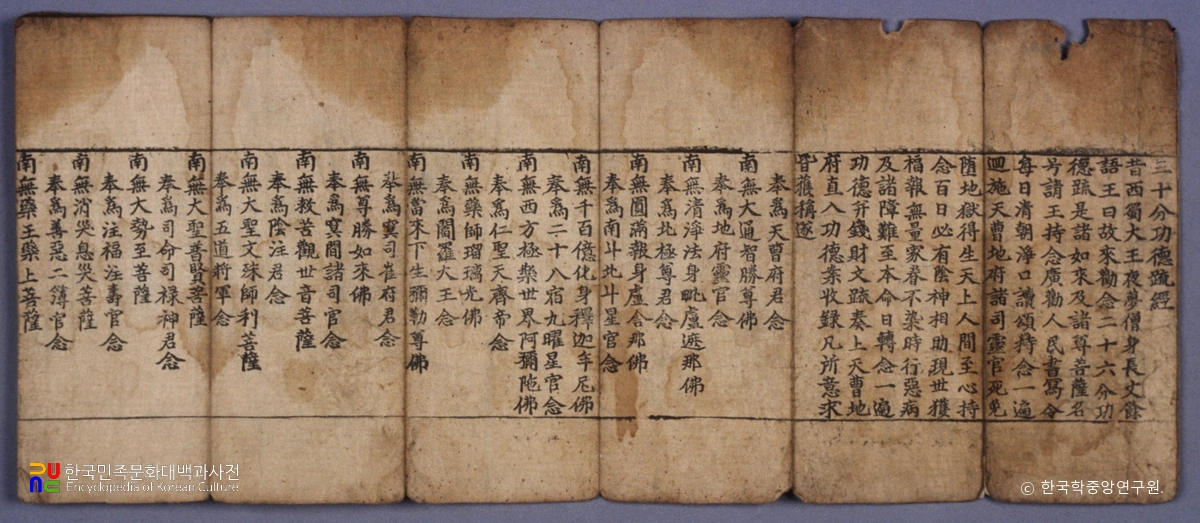 三十分功德䟽經
昔西蜀大王夜夢僧身長丈餘
語王曰故來勸念二十六分功
德䟽是諸如來及諸尊菩薩名
号請王持念廣勸人民書冩令
每日清朝淨口讚頌持念一遍
迴施天曹地府諸司靈官死免
墮地獄得生天上人間至心持
念百日必有陰神相助現世獲
福報無量家眷不染時行惡病
及諸障難至本命日轉念一遍
功德幷錢財文䟽奏上天曹地
府直入功德案收録凡所意求
皆獲稱遂
奉爲天曹府君念
南無大通智勝尊佛
奉爲地府靈官念
南無清淨法身毗盧遮那佛
奉爲北極尊君念
南無圓滿報身盧舍那佛
奉爲南斗北斗星官念
南無千百億化身釋迦牟尼佛
奉爲二十八宿九曜星官念
南無西方極樂世界阿彌陁佛
奉爲仁聖天齊帝念
南無藥師瑠璃光佛
奉爲閻羅大王念
南無當來下生彌勒尊佛
奉爲冥司崔府君念
南無尊勝如來佛
奉爲冥間諸司官念
南無救苦觀世音菩薩
奉爲陰注君念
南無大聖文殊師利菩薩
奉爲五道將軍念
南無大聖普賢菩薩
奉爲司命司禄神君念
南無大勢至菩薩
奉爲注福注壽官念
南無消灾息灾菩薩
奉爲善惡二簿官念
南無藥王藥上菩薩
한국민족문화대백과사전
Encyclopedia of Korean Culture
© 한국학중앙연구원.